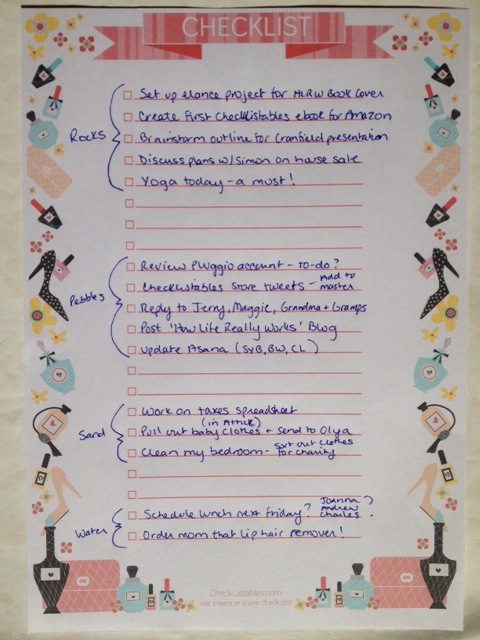 CHECKLIST
Set up elance project for MLRW Book Cover
Create First Checklistables ebook for Amazon
Rocks
Brainstorm outline for Cranfield presentation
Discuss plans w/simon on house sale
Yoga today - a must!
Review Pluggio account - to-do?
Checklistables Store tweets - Add to master
Pebbles
Reply to Jerry, Maggie, Grandma + Gramps
Post 'How Life Really Works' Blog
Update Asana (SYB, BW, CL)
Work on taxes spreadsheet
(in Attic)
Sand
Pull out baby clothes + send to Olya
Clean my bedroom - Sort out clothes for charity
Schedule lunch next Friday? Joanna? Andrew Charles?
Water
Order mom that lip hair remover!
Checklistables.com
use, create or share checklists!